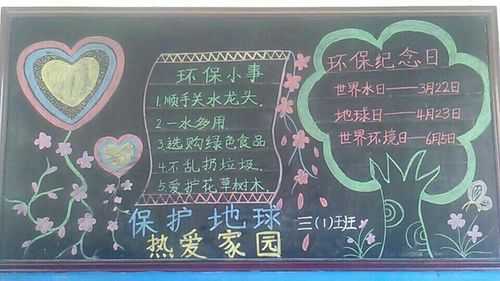 环保小事
1.顺手关水龙头.
2.一水多用.
3.选购绿色食品
4.不乱扔垃圾.
5.爱护花草树木.
环保纪念日
世界水日——3月22日
地球日——4月23日
世界环境日—6月5日
保护地球
热爱家园
三(1)班